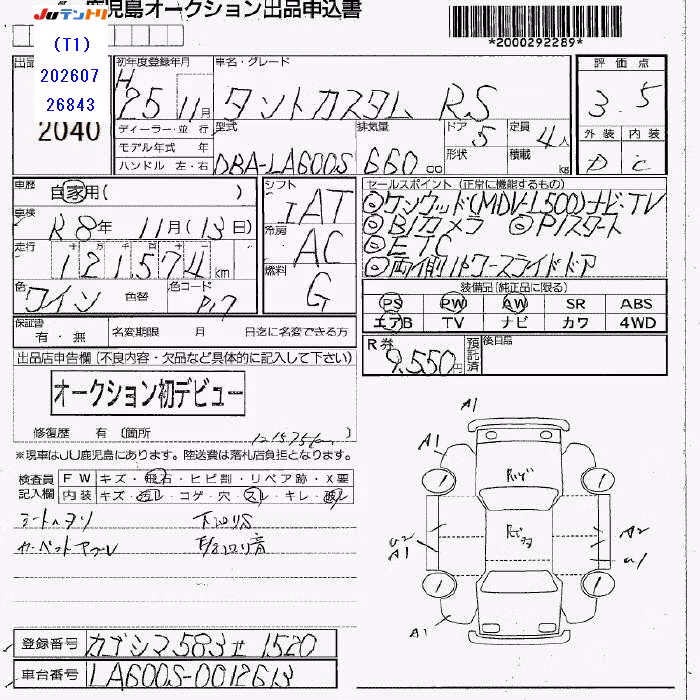 JUテントリ 鹿児島オークション出品申込書
(T1)
202607
26843
2040
*2000292289*
初年度登録年月 車名・グレード
H25 11月 タントカスタム RS
評価点
3.5
外装 内装
D C
ディーラー・並行 型式 排気量 ドア 5 定員 4人
モデル年式 年
ハンドル 左・右 DBA-LA600S 660cc 形状 積載 kg
車歴 自家用( )
車検 R8年 11月(13日)
走行 十 万 千 百 十
121574km
色 ワイン 色替 色コード
シフト IAT
冷房 AC
燃料 G
セールスポイント (正常に機能するもの)
◎ケンウッド(MDV-L500)ナビ・TV
◎B/カメラ ◎P/スタート
◎ETC
◎両側パワースライドドア
装備品(純正品に限る)
PS PW AW SR ABS
エアB TV ナビ カワ 4WD
保証書 有・無 名変期限 月 日迄に名変できる方
R券 9,550円 預託済 後日品
出品店申告欄(不良内容・欠品など具体的に記入して下さい)
オークション初デビュー
修復歴 有 〔箇所
※現車はJU鹿児島にあります。陸送費は落札店負担となります。
検査員記入欄 FW キズ・飛石・ヒビ割・リペア跡・X要
内装 キズ・汚レ・コゲ・穴・スレ・キレ・破レ
シートヘタリ 下回りS
A1
A1
A2
A1
A2
A1
登録番号 カゴシマ583 セ 1520
車台番号 LA600S-0012613